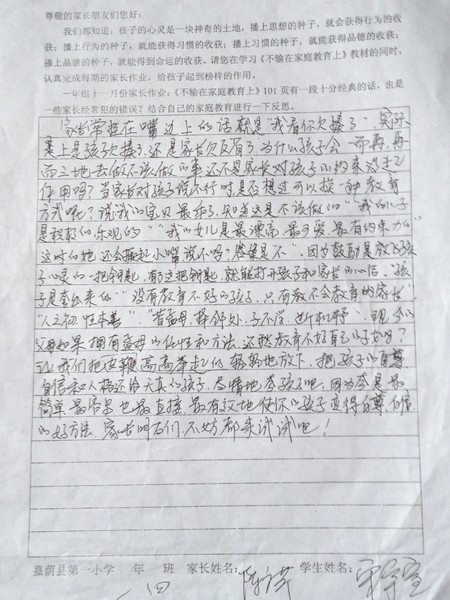 尊敬的家长朋友们您好:
我们都知道:孩子的心灵是一块神奇的土地,播上思想的种子,就会获得行为的收
获;播上行为的种子,就能获得习惯的收获;播上习惯的种子,就能获得品德的收获;
播上品德的种子,就能得到命运的收获。请您在学习《不输在家庭教育上》教材的同时,
认真完成每期的家长作业,给孩子起到榜样的作用。
一年组十一月份家长作业:《不输在家庭教育上》101页有一段十分经典的话,也是
一些家长经常犯的错误?结合自己的家庭教育进行一下反思。
家长常挂在嘴边上的话就是“我看你欠揍了”实际
是上是孩子欠揍?还是家长欠反省?为什么孩子会一而再,再
而三地去做不该做的事还不是家长对孩子的约束没起
作用吗?当家长对孩子说不行时是否想过可以换一种教育
方式呢?说我的宝贝最乖了,知道这是不该做的“我的儿子
是最棒的,乐观的”“我的女儿是最漂亮,最可爱,最有约束力的”
这时的他还会撅起小嘴说不吗?答案是不”。因为鼓励是放飞孩
子心灵的一把钥匙,有了这把钥匙,就能打开孩子和家长的心信。“孩
子是夸出来的”“没有教育不好的孩子,只有教不会教育的家长
“人之初,性本善”,“昔孟母,择邻处,子不学,断机杼”。现今的
父母如果拥有孟母的性和方法,还愁教育不好自己的子女吗?
让我们把这鞭高高举起的,轻轻地放下,把孩子的自尊
自信和人格还给天真的孩子,尽情地夸孩子吧,因为夸是最
简单,最容易也最直接,最有效地使你的孩子重得自尊、自信
的好方法。家长朋友们,不妨都来试试吧!
嘉荫县第一小学 一年 四班 家长姓名: 学生姓名: